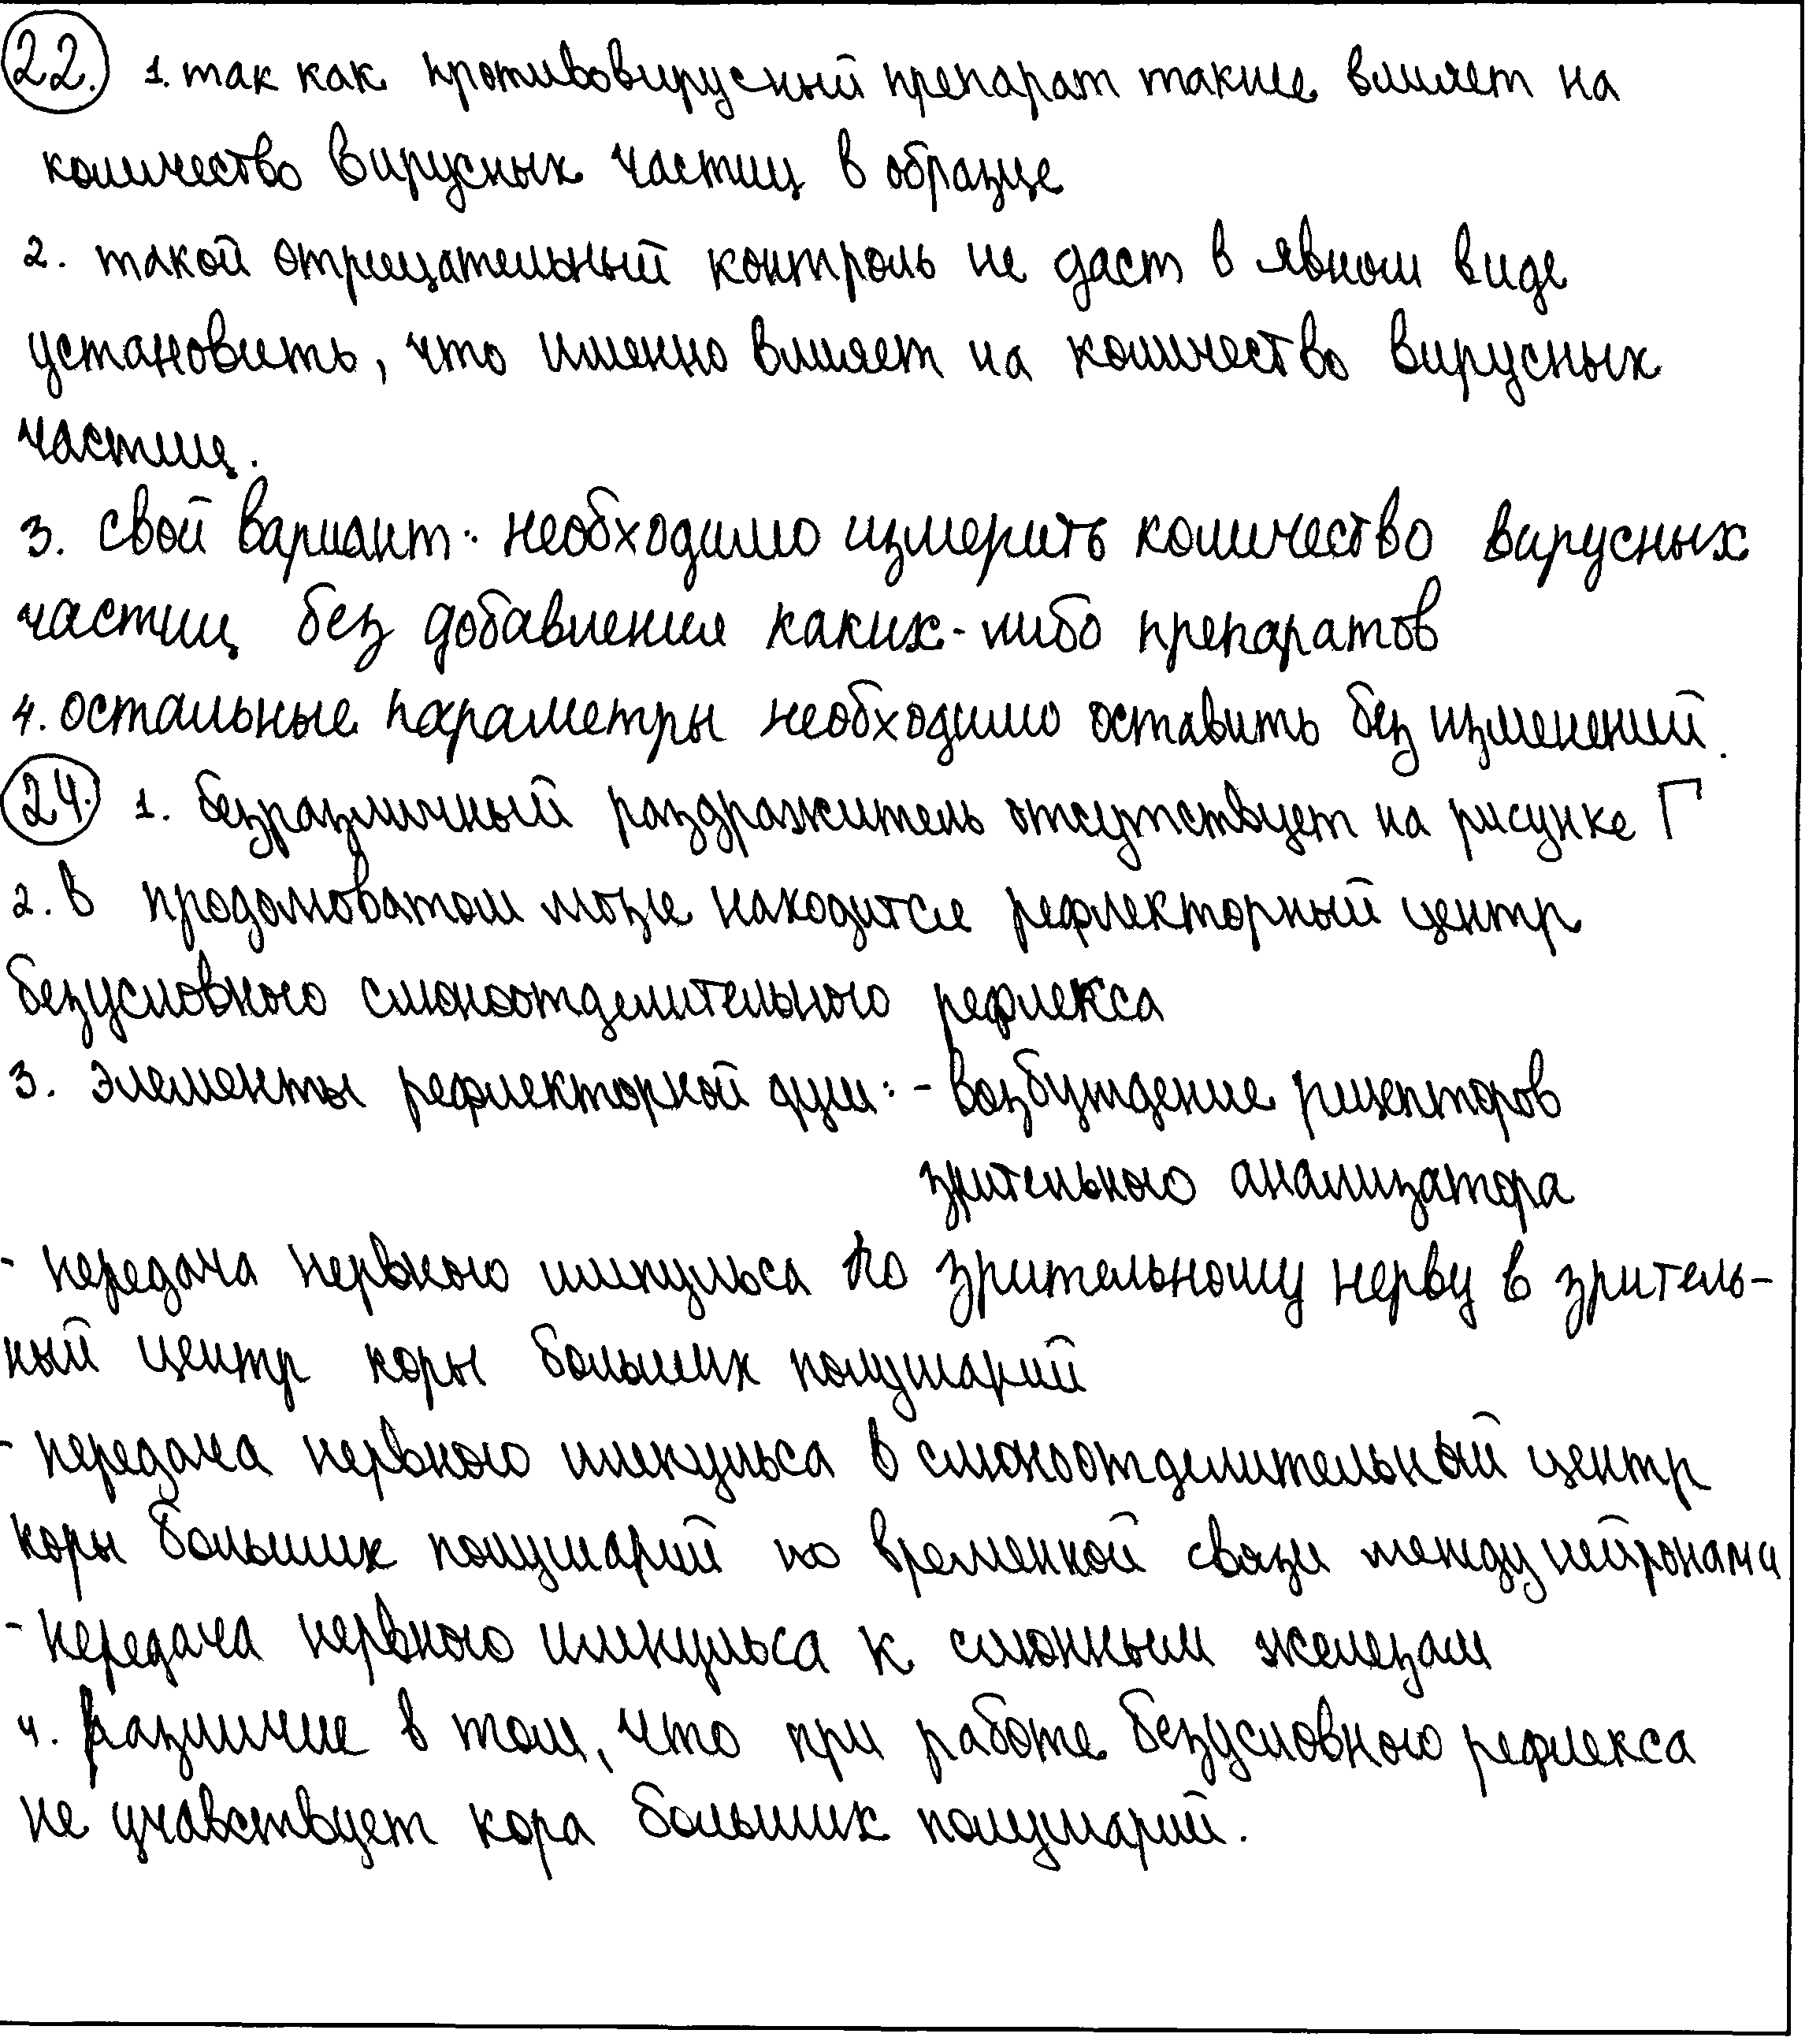 22. 1. так как противовирусный препарат также влияет на
количество вирусных частиц в образце
2. такой отрицательный контроль не даст в явном виде
установить, что именно влияет на количество вирусных
частиц.
3. свой вариант: необходимо измерить количество вирусных
частиц без добавления каких-либо препаратов
4. остальные параметры необходимо оставить без изменений.
24. 1. безразличный раздражитель отсутствует на рисунке Г
2. в продолговатом мозге находится рефлекторный центр
безусловного слюноотделительного рефлекса
3. элементы рефлекторной дуги: - возбуждение рецепторов
зрительного анализатора
- передача нервного импульса по зрительному нерву в зритель-
ный центр коры больших полушарий
- передача нервного импульса в слюноотделительный центр
коры больших полушарий по временной связи между нейронами
- передача нервного импульса к слюнным железам
4. различие в том, что при работе безусловного рефлекса
не учавствует кора больших полушарий.